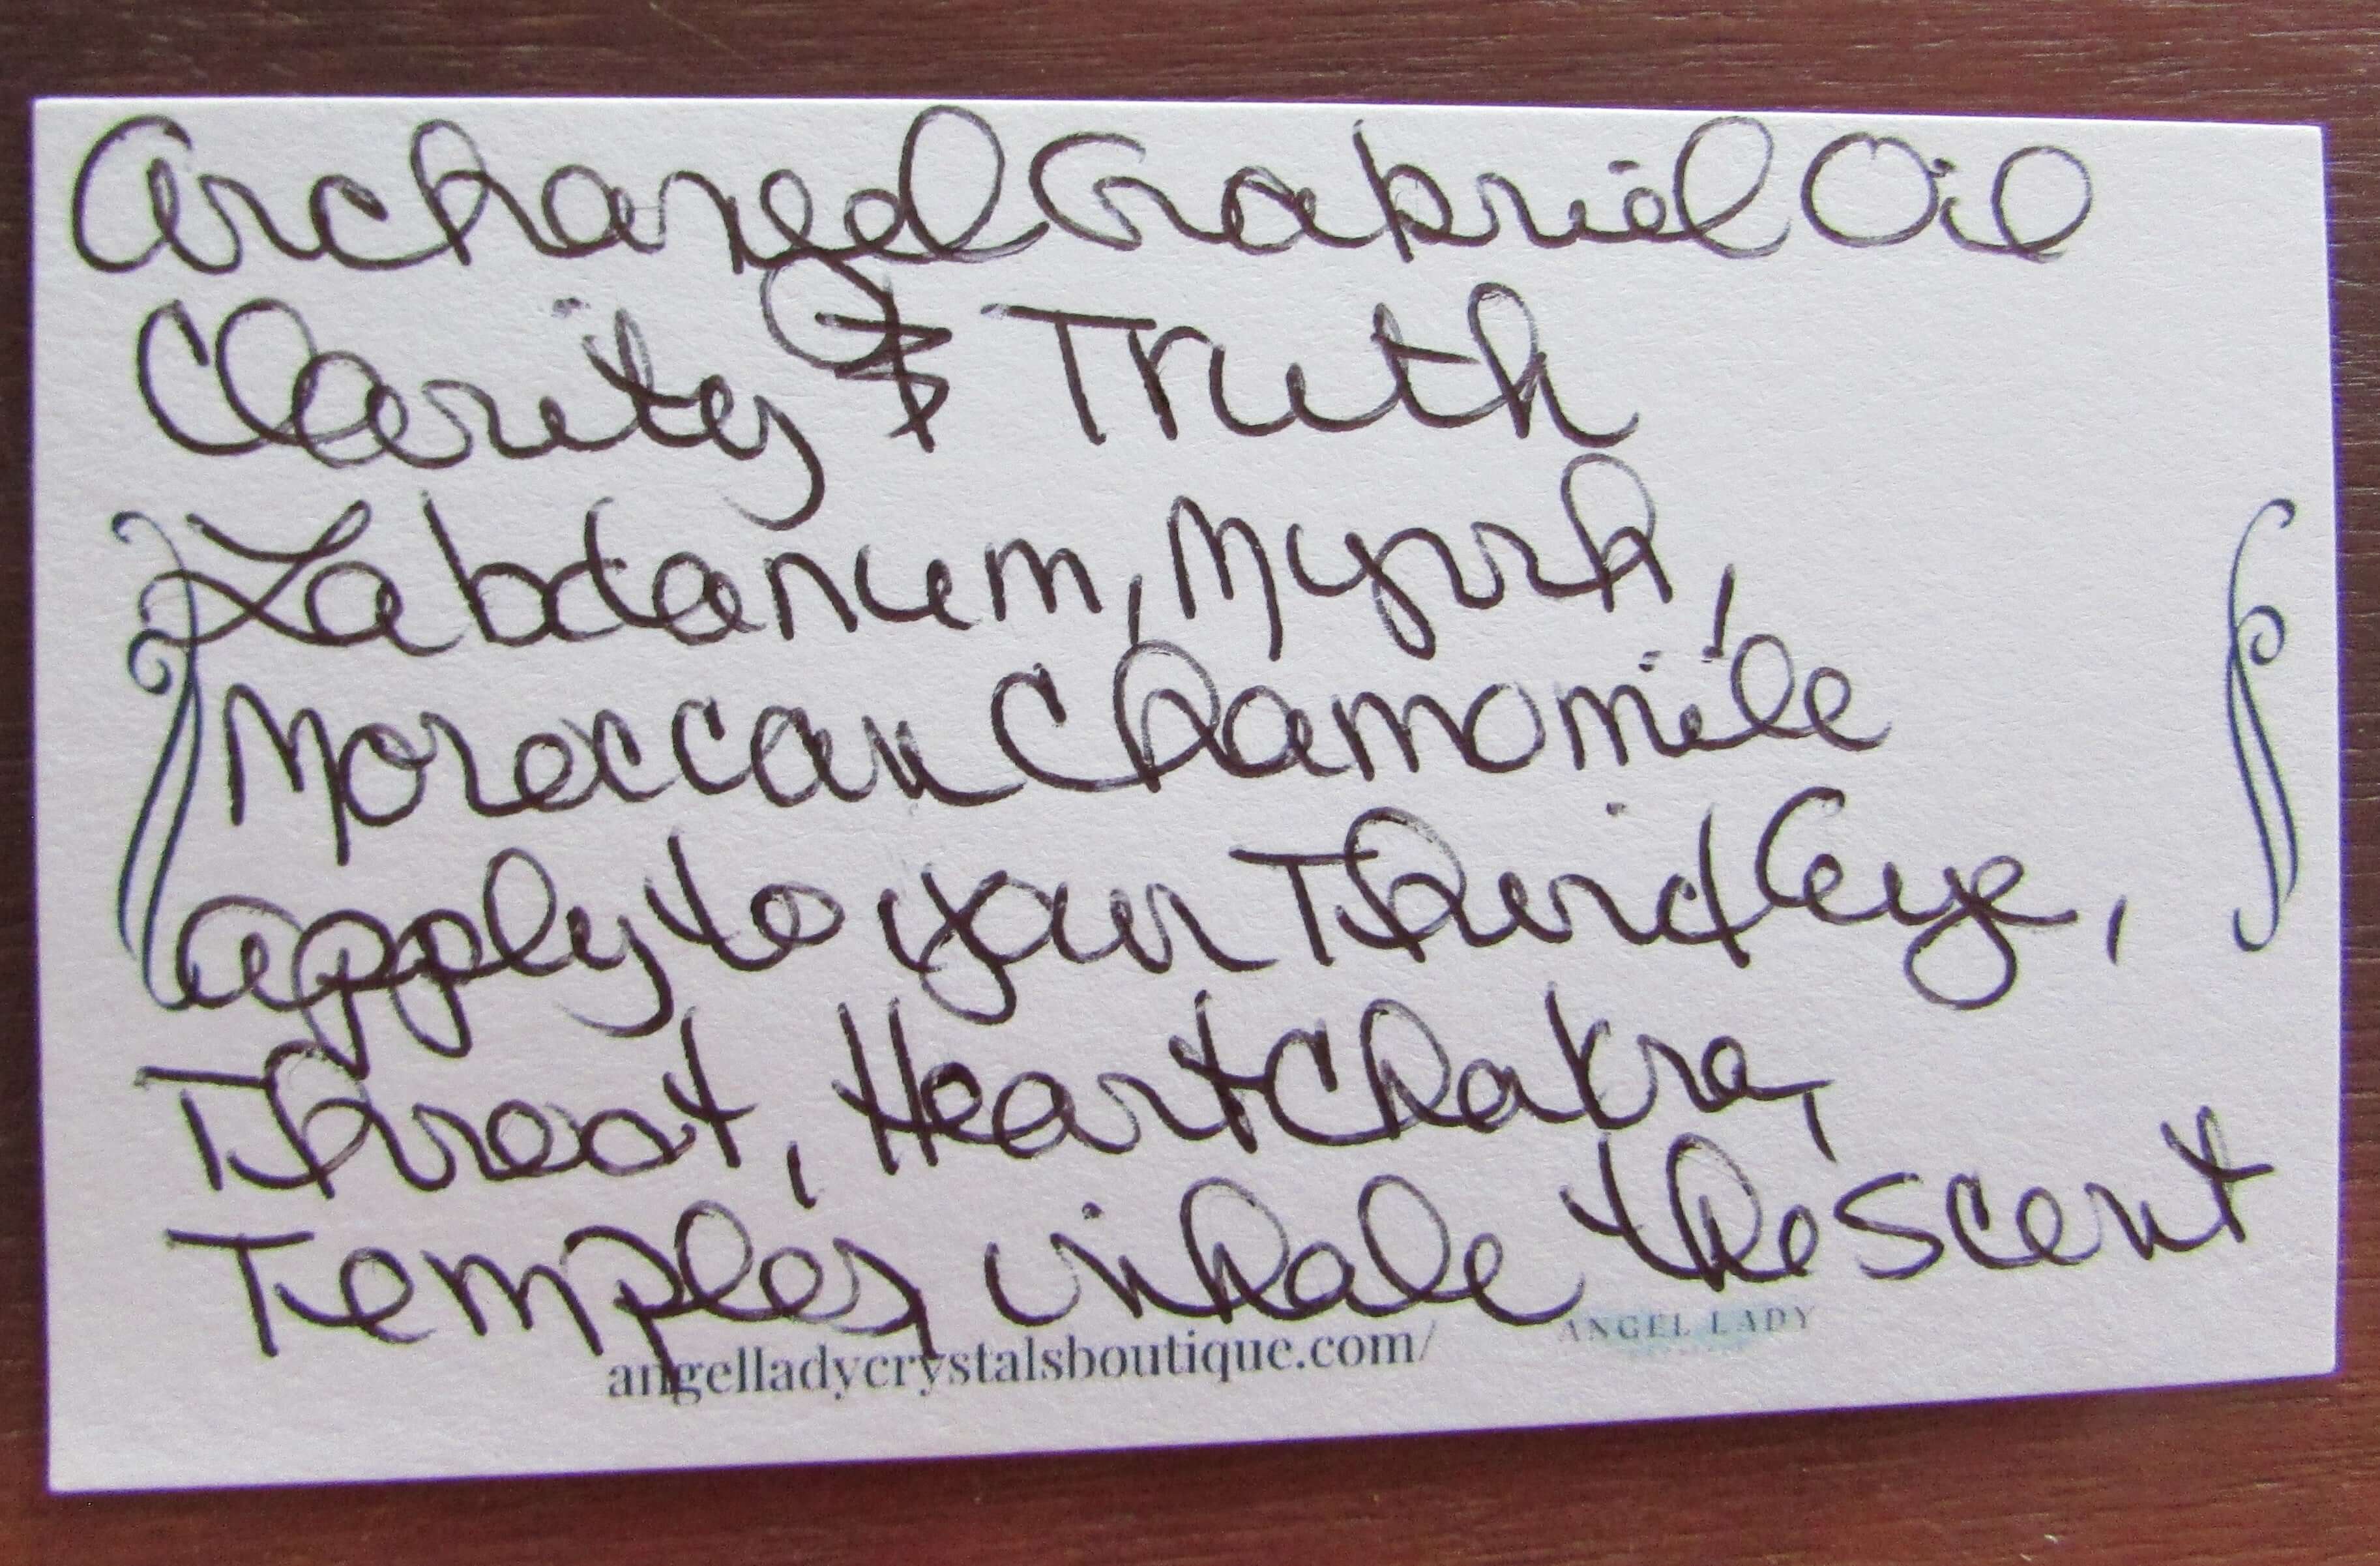 Archangel Gabriel Oil
Clarity & Truth
Labdanum, Myrrh,
Moroccan Chamomile
apply to your Third Eye,
Throat, Heart Chakra,
Temples, inhale the scent
angelladycrystalsboutique.com/ ANGEL LADY